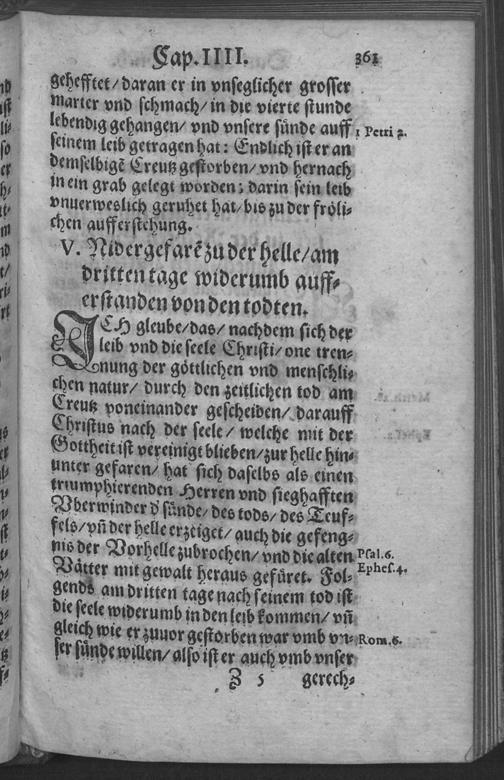 Cap. IIII. 361
gehefftet/ daran er in vnseglicher grosser
marter vnd schmach/ in die vierte stunde
lebendig gehangen/ vnd vnsere sünde auff 1 Petri 2.
seinem leib getragen hat: Endlich ist er an
demselbigē Creutz gestorben/ vnd hernach
in ein grab gelegt worden; darin sein leib
vnuerweslich geruhet hat/ bis zu der fröli-
chen aufferstehung.
V. Nidergefarē zu der helle/ am
dritten tage widerumb auff-
erstanden von den todten.
ICH gleube/ das/ nachdem sich der
leib vnd die seele Christi/ one tren-
nung der göttlichen vnd menschli-
chen natur/ durch den zeitlichen tod am
Creutz voneinander gescheiden/ darauff
Christus nach der seele/ welche mit der
Gottheit ist vereinigt blieben/ zur helle hin-
unter gefaren/ hat sich daselbs als einen
triumphierenden Herren vnd sieghafften
Vberwinder d' sünde/ des tods/ des Teuf-
fels/ vñ der helle erzeiget/ auch die gefeng-
nis der Vorhelle zubrochen/ vnd die alten Psal. 6.
Vätter mit gewalt heraus gefüret. Fol- Ephes. 4.
gends am dritten tage nach seinem tod ist
die seele widerumb in den leib kommen/ vñ
gleich wie er zuuor gestorben war vmb vn- Rom. 6.
ser sünde willen/ also ist er auch vmb vnser
Z 5 gerech-